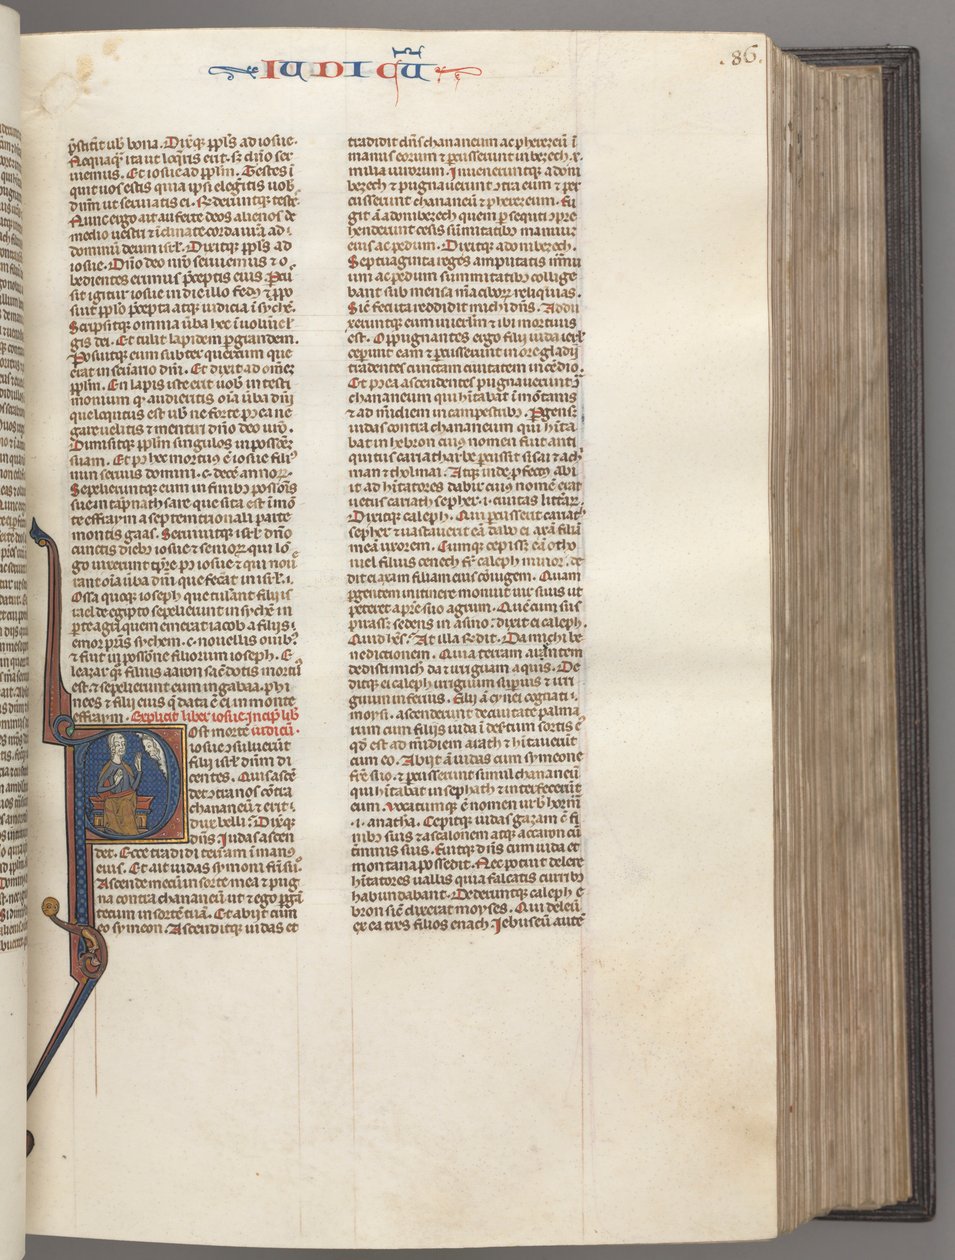 IUDICUͫ
.86.
p̄stitit̄ ub̄ bona. Dix̄q̄ ppl̄s ad iosue.
Nequaq̄ ita ut loq̄ris erit. sꝫ dn̄o ser
uiemus. Et iosue ad ppl̄m. Testes ī
quit uos estis quia ip̄si elegistis uob̄
dn̄m ut seruiatis ei. R̄deruntq; testes.
Nunc ergo ait auferte deos alienos de
medio uestri ⁊ īclinate corda ur̄a ad
dominū deum isrl̄. Dixitq; ppl̄s ad
iosue. Dn̄o deo nr̄o seruiemus ⁊ o
bedientes erimus p̄ceptis eius. P̄cus
sit igitur iosue in die illo fed̄ ⁊ p̄po
suit ppl̄o p̄cepta atq; iudicia ī sychē.
Scripsitq; omnia ūba hec ī uolumīe le
gis dei. Et tulit lapidem p̄grandem.
Posuitq; eum subter quercum que
erat in sc̄uario dn̄i. Et dixit ad om̄eꝫ
ppl̄m. En lapis iste erit uob̄ in testi
monium q̄ audieritis oīa ūba dn̄i
que locutus est ub̄ ne forte p̄ea ne
gare uelitis ⁊ mentiri dn̄o deo ur̄o.
Dimisitq; ppl̄m singulos in possess̄
suam. Et p̄ hec mortuꝰ ē iosue filiꝰ
nun seruus domini .c. ⁊ decē annoꝝ.
Sepelieruntq; eum in finibꝰ poss̄ois
sue in tāpnathsare que sita est ī mō
te effraym a septemtrionali parte
montis gaas. Seruiuitq; isrl̄ dn̄o
cunctis diebꝰ iosue ⁊ senioꝝ qui lō
go uixerunt tp̄re p̄ iosue ⁊ qui noū
rant oīa ūba dn̄i que fecat̄ in isrl̄.
Ossa quoq; ioseph que tulant̄ filii is
rael de egipto sepelierunt in sychē in
p̄te agri quem emerat iacob a filiis
emor pr̄is sychem .c. nouellis ouibꝰ.
⁊ fuit ī poss̄one filiorum ioseph. E
leazar q̄ꝫ filius aaron sac̄dotis mortuꝰ
est. ⁊ sepelierunt eum in gabaa. phi
nees ⁊ filii eius q̄ data ē ei in monte
effraym. Explicit liber iosue. Incip̄ lib̄
Ost mortē iudicū.
iosue ꝯsuluerūt
filii isrl̄ dn̄m di
centes. Quis ascē
det añ nos cōtra
chananeū ⁊ erit
dux belli. Dixq̄
dn̄s. Iudas ascen
det. Ecce tradidi terram ī manꝰ
eius. Et ait iudas symoni fr̄i suo.
Ascende mecū in sorte mea ⁊ pug
na contra chananeū ut ⁊ ego p̄gā
tecum in sortē tuā. Et abiit cum
eo symeon. Ascenditq; iudas et
tradidit dn̄s chananeum ac pherezeū ī
manus eorum ⁊ p̄cusserunt in bezech .x.
milia uirorum. Inueneruntq; adoni
bezech ⁊ pugnauerunt ꝯtra eum ⁊ per
cusserunt chananeū ⁊ pherezeum. Fu
git aū adonibezech quem p̄secuti ꝯpre
henderunt cesis sūmitatibꝰ manuū
eius ac pedum. Dixitq; adonibezech.
Septuaginta reges amputatis manu
um ac pedum summitatibꝰ collige
bant sub mensa mea ciboꝝ reliquias.
Sic̄ feci ita reddidit michi dn̄s. Addu
xeruntq; eum in ierl̄m ⁊ ibi mortuus
est. Oppugnantes ergo filii iuda ierl̄m
ceperunt eam ⁊ p̄cusserunt in ore gladii
tradentes cunctam ciuitatem incēdio.
Et p̄ea ascendentes pugnauerunt ꝯ̄
chananeum qui h̄itabat ī mōtanis
⁊ ad m̄idiem in campestribꝰ. Pgensꝫ
iudas contra chananeum qui h̄ita
bat in hebron cuiꝰ nomen fuit anti
quitus cariatharbe p̄cussit sisai ⁊ achi
man ⁊ tholmai. Atq; inde p̄fectꝰ abi
it ad h̄itatores dabir cuiꝰ nomē erat
uetus cariath sepher .i. ciuitas litt̄aꝝ.
Dixitq; caleph. Qui p̄cusserit cariath
sepher ⁊ uastauerit eā dabo ei axā filiā
meā uxorem. Cumq; cepiss̄ eā otho
niel filius cenech fr̄ caleph minor. de
dit ei axam filiam eius cōiugem. Quam
p̄gentem in itinere monuit uir suus ut
peteret a pr̄e suo agrum. Que cum sus
pirass̄ sedens in asino. dixit ei caleph.
Quid h̄es. At illa r̄dit. Da michi be
nedictionem. Quia terram arentem
dedisti mich̄ da ⁊ irriguam aquis. De
ditq; ei caleph irriguum superius ⁊ irri
guum inferius. Filii aū cynei cognati
moysi. ascenderunt de ciuitate palma
rum cum filiis iuda ī des̄tum sortis eꝰ
qd̄ est ad m̄idiem arath ⁊ h̄itauerūt
cum eo. Abiit aū iudas cum symeone
fr̄e suo. ⁊ p̄cusserunt simul chananeū
qui h̄itabat in sephath ⁊ interfecerūt
eum. Vocatumq; ē nomen urb̄ horma
.i. anatha. Cepitq; iudas gazam cū fi
nibꝰ suis ⁊ ascalonem atq; accaron cū
t̄minis suis. Fuitq; dn̄s cum iuda et
montana possedit. Nec potuit delere
h̄itatores uallis quia falcatis curribꝰ
habundabant. Dederuntq; caleph e
bron sic̄ dixerat moyses. Qui deleuit
ex ea tres filios enach. Iebuseū autē